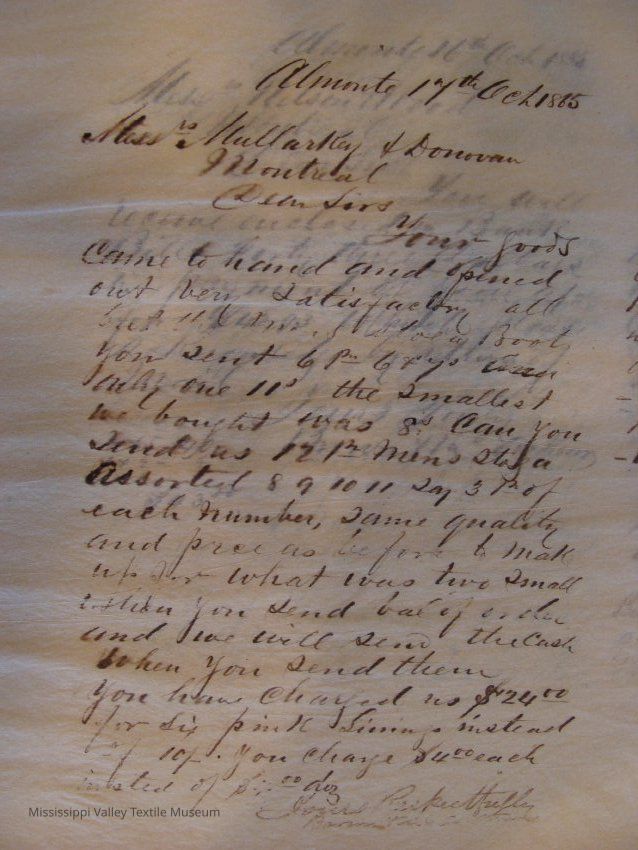 Almonte 17th Oct 1865
Messrs Mullarkey & Donovan
Montreal
Dear Sirs
Your goods
came to hand and opened
out very satisfactory all
but the
you sent 6 Pr
only one 11s the smallest
we bought was 8s Can you
send us 12 Pr Mens Stoga
Assorted 8 9 10 11 Say 3 Pr of
each number, same quality
and price as before to make
up for what was two small
when you send bal of order
and we will send the Cash
When you send them
You have charged us $24.00
for six pink Linings instead
of 10/-. You charge $4.00 each
insted of doz
Yours
Mississippi Valley Textile Museum